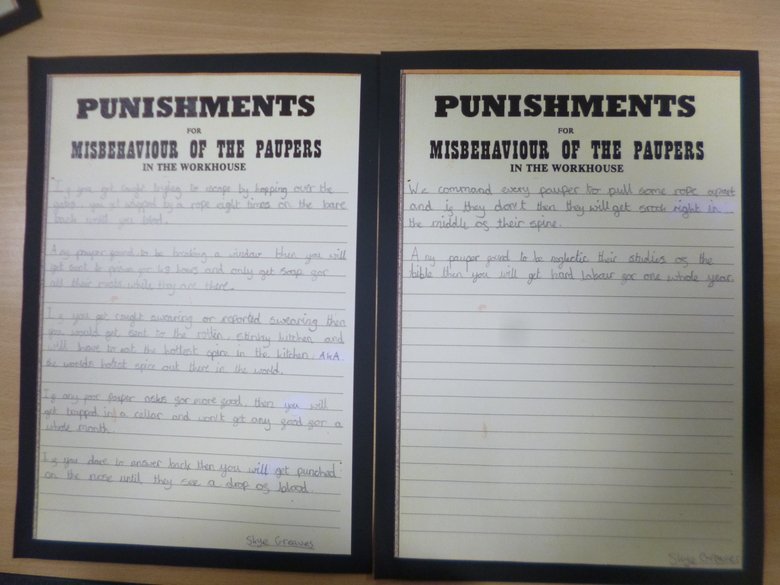 PUNISHMENTS
FOR
MISBEHAVIOUR OF THE PAUPERS
IN THE WORKHOUSE
If you get caught trying to escape by hopping over the
gates, you'll whipped by a rope eight times on the bare
back until you bleed.
Any pauper found to be breaking a window then you will
get sent to prison for 48 hours and only get soap for
all their meals while they are there.
If you get caught swearing or reported swearing then
you would get sent to the rotten, stinky kitchen and
will have to eat the hottest spice in the kitchen, AKA
the worlds hottest spice out there in the world.
If any poor pauper asks for more food, then you will
get trapped in a cellar and won't get any food for a
whole month.
If you dare to answer back then you will get punched
on the nose until they see a drop of blood.
Skye Greaves
PUNISHMENTS
FOR
MISBEHAVIOUR OF THE PAUPERS
IN THE WORKHOUSE
We command every pauper to pull some rope apart
and if they don't then they will get right in
the middle of their spine.
Any pauper found to be neglectic their studies of the
bible then you will get hard labour for one whole year.
Skye Greaves